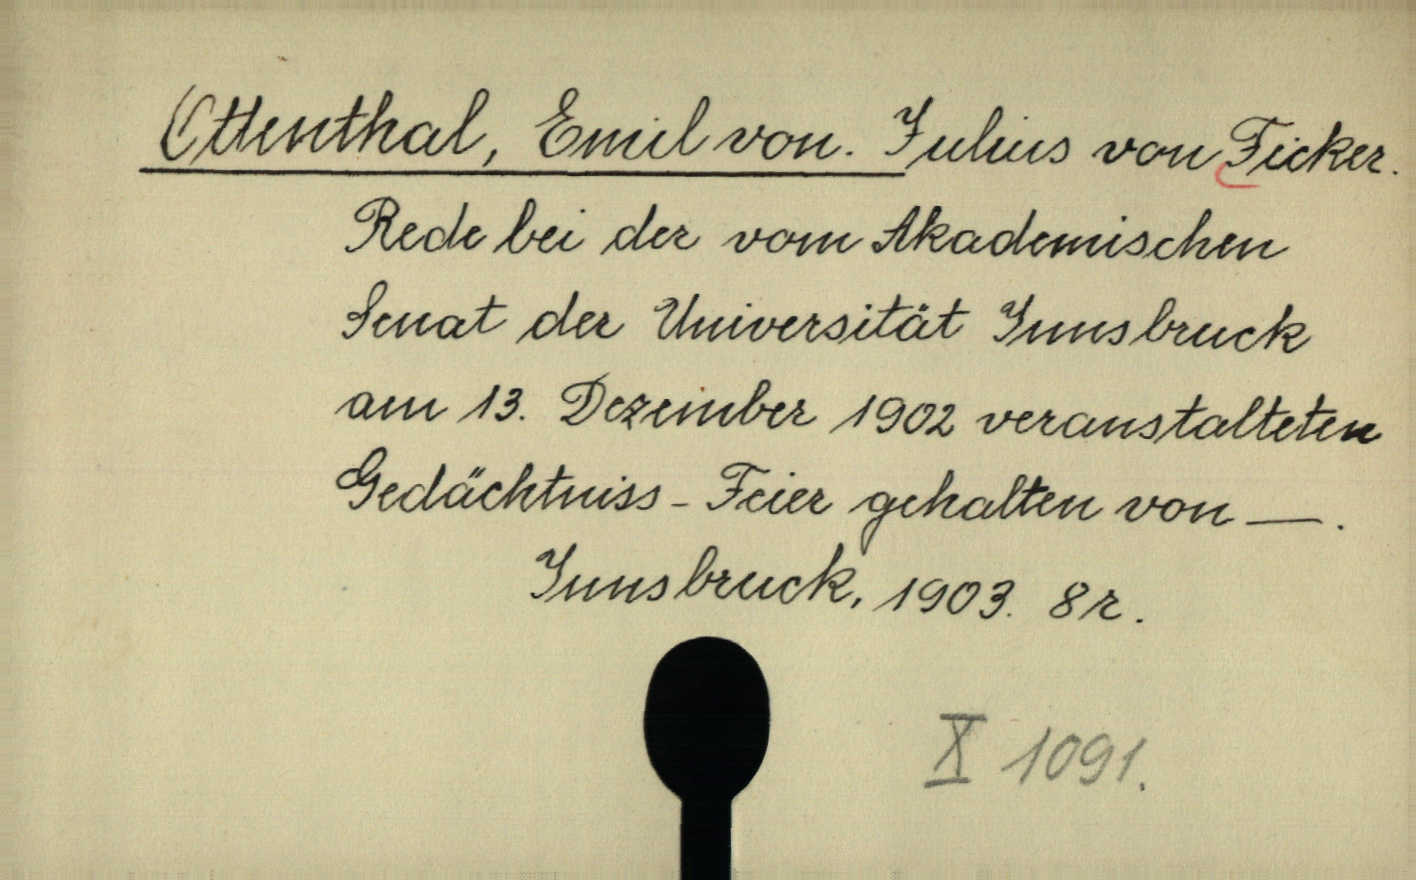 Ottenthal, Emil von. Julius von Ficker.
Rede bei der vom Akademischen
Senat der Universität Innsbruck
am 13. Dezember 1902 veranstalteten
Gedächtniss-Feier gehalten von —.
Innsbruck, 1903. 8r.
X 1091.